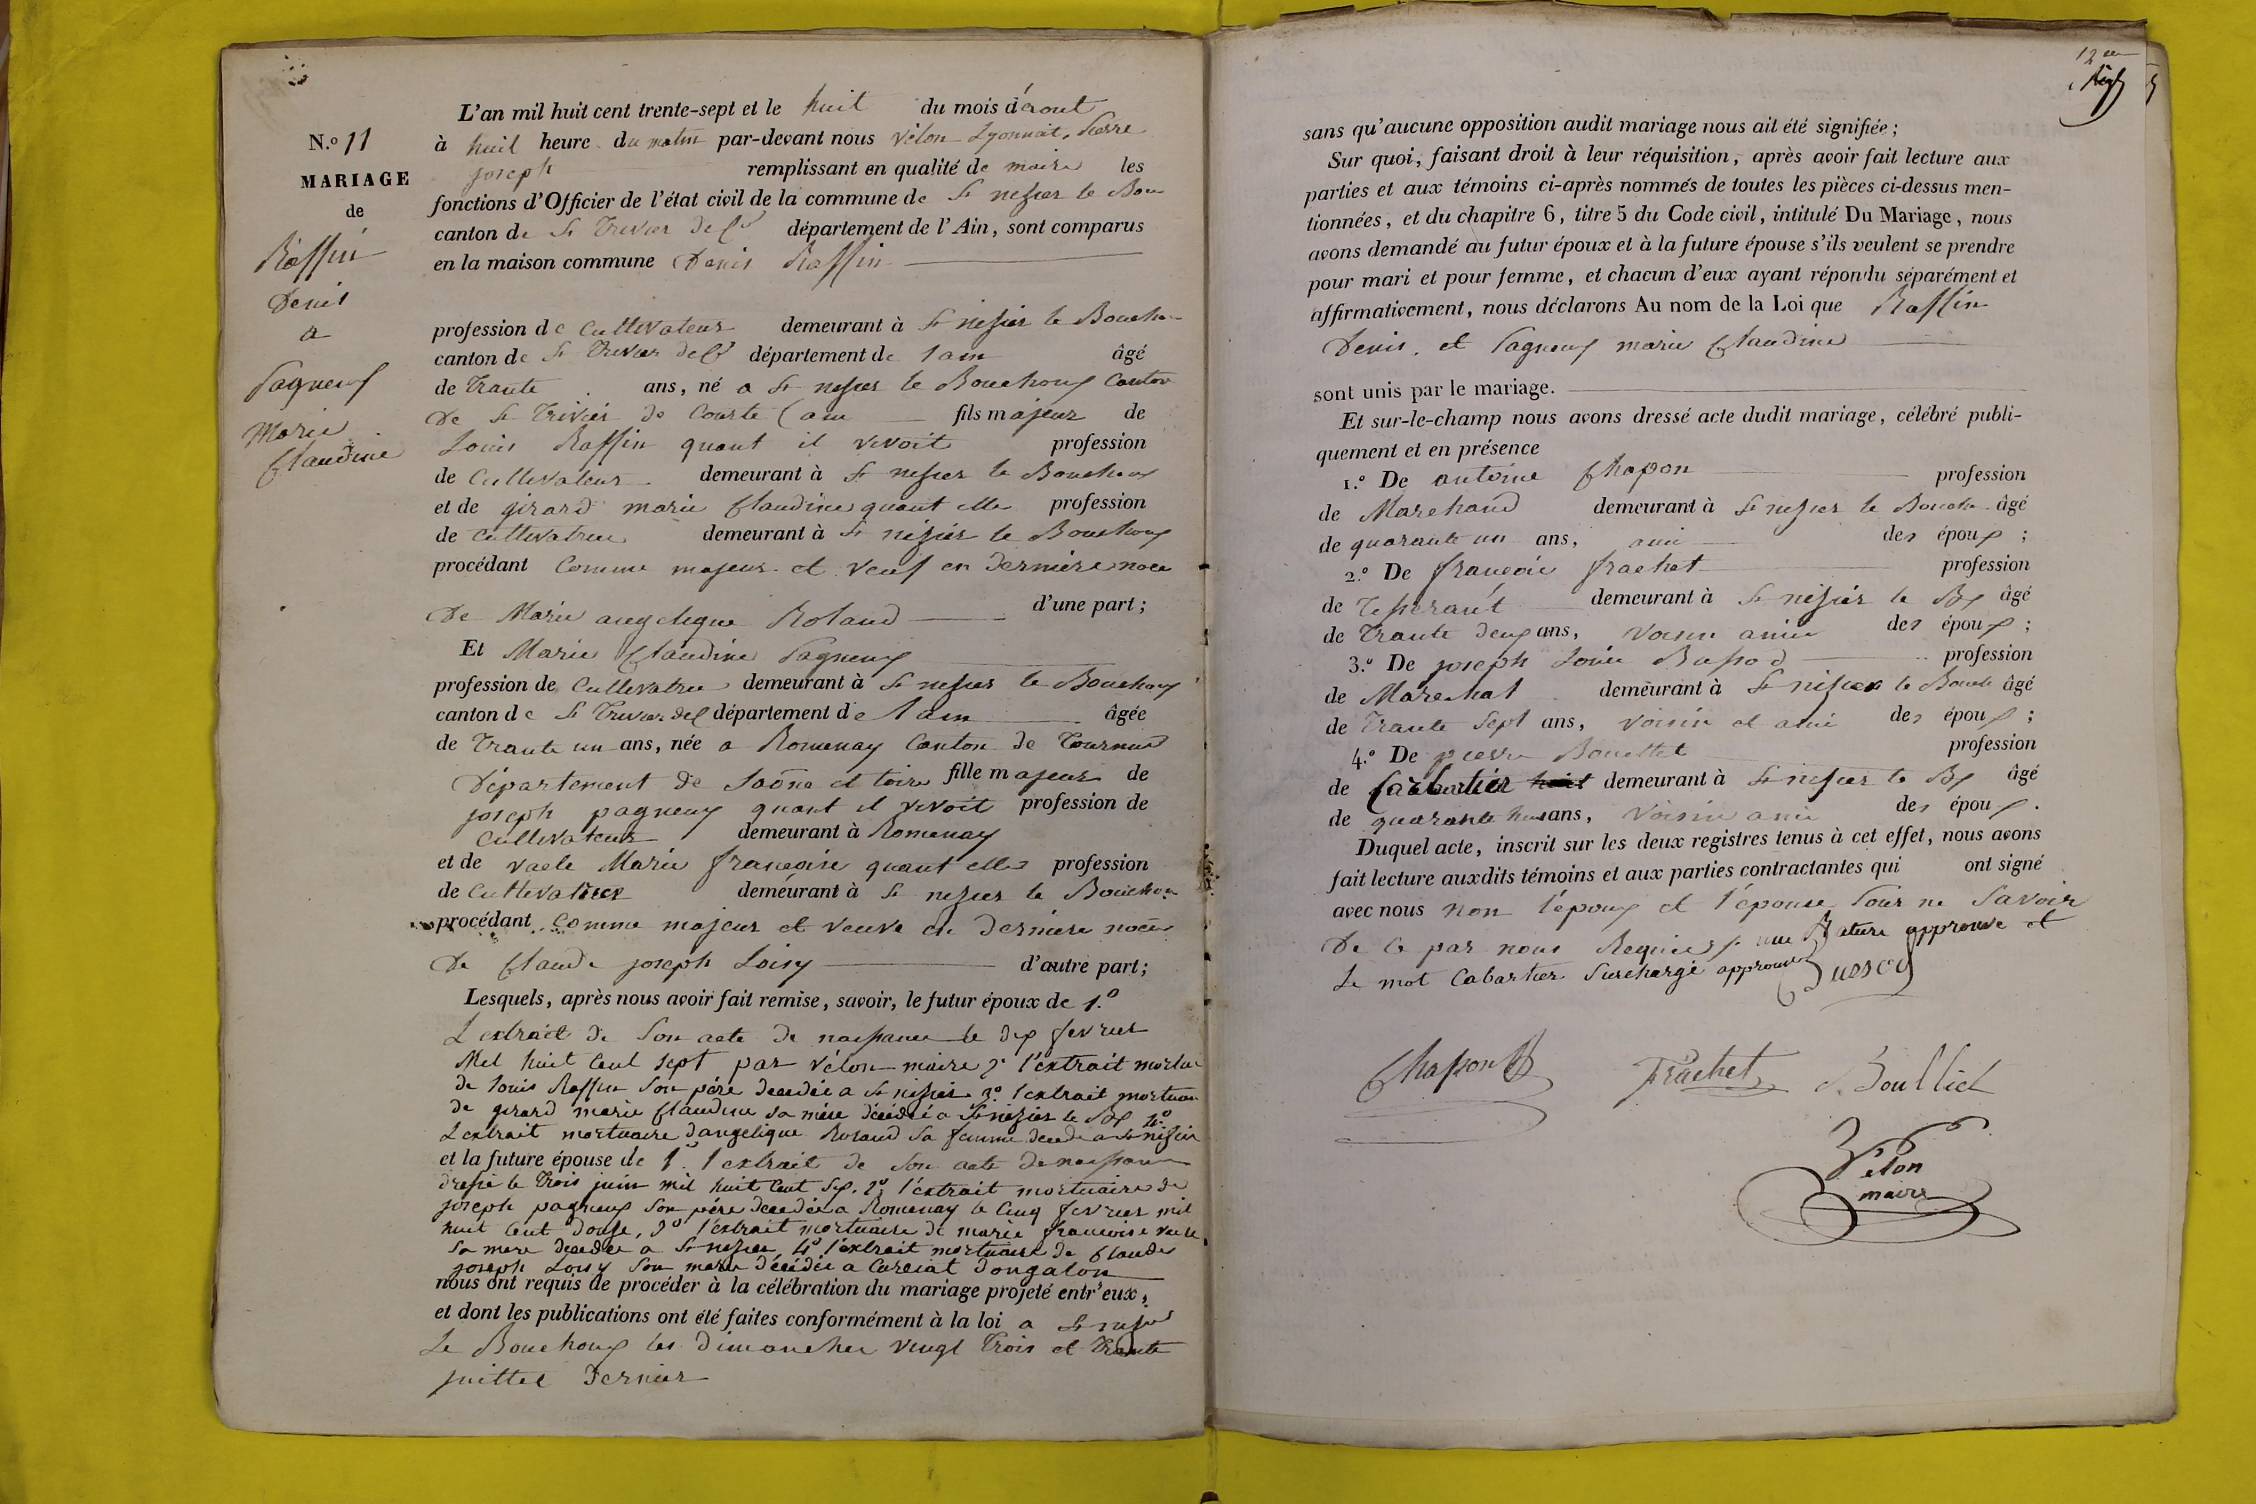 N.o 11
MARIAGE
de
Raffin
Denis
a
Pagneux
Marie
Claudine
L'an mil huit cent trente-sept et le huit du mois d'aout
à huit heure du matin par-devant nous vélon Lyonnait, Pierre
joseph remplissant en qualité de maire les
fonctions d'Officier de l'état civil de la commune de St nesier le Bou
canton de St Trivier de Ct département de l'Ain, sont comparus
en la maison commune Denis Raffin
profession de Cultivateur demeurant à St nesier le Boucho
canton de St Trivier de Ct département de l ain âgé
de trante ans, né a St nesier le Bouchoux Canton
De St Trivier de Courte (ain fils majeur de
Louis Raffin quant il vivoit profession
de Cultivateur demeurant à St nesier le Bouchoux
et de girard marie Claudine quant elle profession
de Cultivatrice demeurant à St nésier le Bouchoux
procédant Comme majeur et veuf en Derniere noce
De Marie angelique Roland d'une part;
Et Marie Claudine Pagneux
profession de Cultivatrice demeurant à St nesier le Bouchoux
canton de St Trivier de C département de l ain âgée
de trante un ans, née a Romenay Canton de Tournus
Département de Saône et loire fille majeur de
joseph pagneux quant il vivoit profession de
Cultivateur demeurant à Romenay
et de vaele Marie francoise quant elle profession
de Cultivatrice demeurant à St nesier le Bouchou
procédant Comme majeur et veuve en Derniere noce
De Claude joseph Loisy d'autre part;
Lesquels, après nous avoir fait remise, savoir, le futur époux de 1.o
L'extrait de Son acte de naissance le dix fevrier
Mil huit Cent sept par Vélon maire 2o l'extrait mortu
de louis Raffin Son pére decedée a St nesier 3o l'extrait mortuai
de girard marie Claudine sa mére décédé a St nesier le Bx 4o
L'extrait mortuaire d'angelique Roland Sa femme decede a St nesier
et la future épouse de 1o l'extrait de Son acte de naissance
dressé le Trois juin mil huit Cent Six, 2o l'extrait mortuaire de
joseph pagneux Son pére decedée a Romenay le Cinq fevrier mil
huit Cent Douse, 3o l'extrait mortuaire de marie francoise vaele
Sa mere decedée a St nesier 4o l'extrait mortuaire de Claude
joseph Loisy Son mari décédée a Curciat Dongalon
nous ont requis de procéder à la célébration du mariage projeté entr'eux,
et dont les publications ont été faites conformément à la loi a St nesier
Le Bouchoux les Dimanches vingt Trois et Trante
juillet Dernier
12
sans qu'aucune opposition audit mariage nous ait été signifiée;
Sur quoi, faisant droit à leur réquisition, après avoir fait lecture aux
parties et aux témoins ci-après nommés de toutes les pièces ci-dessus men-
tionnées, et du chapitre 6, titre 5 du Code civil, intitulé Du Mariage, nous
avons demandé au futur époux et à la future épouse s'ils veulent se prendre
pour mari et pour femme, et chacun d'eux ayant répondu séparément et
affirmativement, nous déclarons Au nom de la Loi que Raffin
Denis, et Pagneux marie Claudine
sont unis par le mariage.
Et sur-le-champ nous avons dressé acte dudit mariage, célébré publi-
quement et en présence
1.o De antoine Chapon profession
de Marchand demeurant à St nesier le Boucho âgé
de quarante un ans, ami des époux;
2.o De francois frachet profession
de Tisserant demeurant à St nésier le Bx âgé
de Trante deux ans, Voisin ami des époux;
3.o De joseph Louis Bassod profession
de Marechal demeurant à St nisier le Bouch âgé
de Trante Sept ans, Voisin et ami des époux;
4.o De pierre Bouillet profession
de Cabartier demeurant à St nesier le Bx âgé
de quarante huit ans, Voisin ami des époux.
Duquel acte, inscrit sur les deux registres tenus à cet effet, nous avons
fait lecture auxdits témoins et aux parties contractantes qui ont signé
avec nous non l'époux et l'épouse Pour ne Savoir
De ce par nous Requis, une Rature approuve et
Le mot Cabartier Surchargé approuve
Chapon
Frachet
Boulliet
Vélon
maire